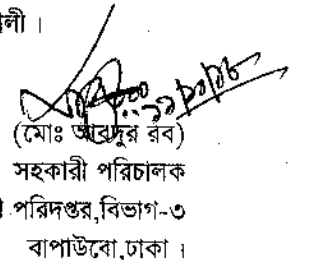 লী ।
(মোঃ আবদুর রব)
সহকারী পরিচালক
পরিদপ্তর,বিভাগ-৩
বাপাউবো,ঢাকা ।